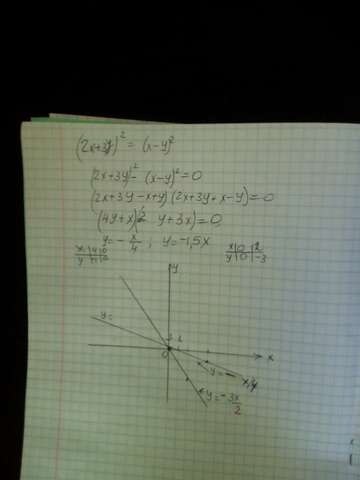 (2x+3y)² = (x-y)²
(2x+3y)² - (x-y)² = 0
(2x+3y-x+y)(2x+3y+x-y) = 0
(4y+x)(2y+3x) = 0
y = -x/4 ; y = -1,5x
x|0|2
y|0|-3
y
y=
0
x
y = -
y = -3x/2